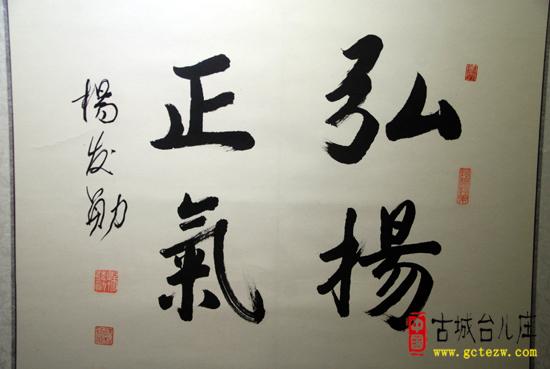 弘揚
正氣
楊发勛
中國
古城台儿庄
www.gctezw.com